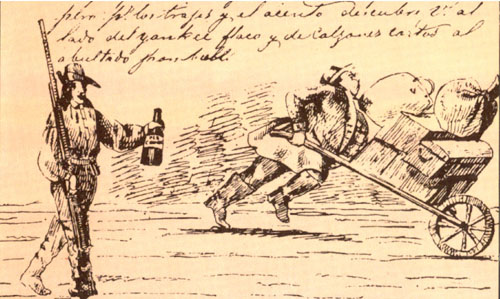 pero pr. los trajes y el acento descubre Vd. al
lado del yankee flaco y de calzones cortos al
abultado John bull.